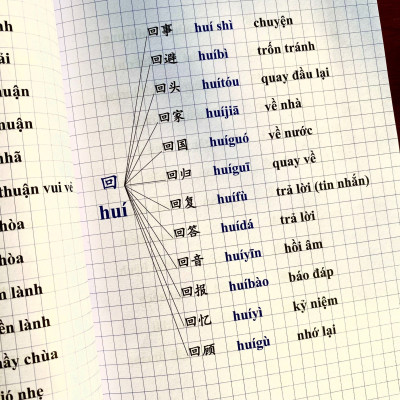 nh
ải
huận
huận
nhã
thuận vui vẻ
hòa
hòa
n lành
ền lành
ầy chùa
ió nhẹ
回 huí
回事 huí shì chuyện
回避 huíbì trốn tránh
回头 huítóu quay đầu lại
回家 huíjiā về nhà
回国 huíguó về nước
回归 huíguī quay về
回复 huífù trả lời (tin nhắn)
回答 huídá trả lời
回音 huíyīn hồi âm
回报 huíbào báo đáp
回忆 huíyì kỷ niệm
回顾 huígù nhớ lại